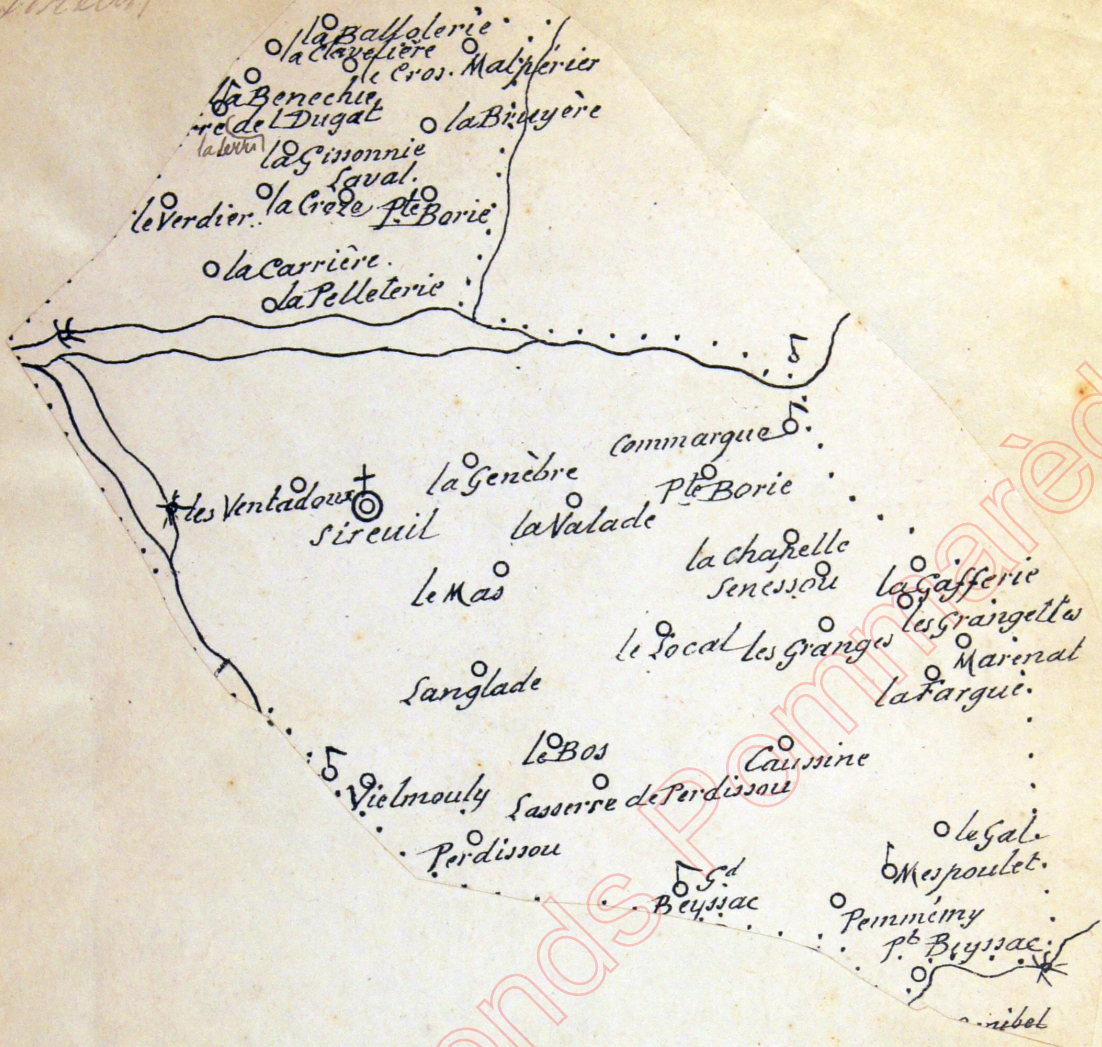 la Ballolerie
la Clavelière
le Cros. Malpérier
la Benechie
de l Dugat
la Bruyère
la Gissonnie
Laval.
le Verdier. la Croze Pte Borie
la Carrière.
la Pelleterie
Commargue
la Genèbre
Pte Borie
les Ventadoux
la Valade
Sireuil
la Chapelle
le Mas
Senéssou
la Gafferie
les Grangettes
le Local les Granges
Marenat
Langlade
la Fargue.
le Bos
Caussine
Vielmouly
Lasserre de Perdissou
le Gal.
Perdissou
Mespoulet.
Gd
Beyssac
Pemmémy
Pt Beyssac.
nibel
Fonds Pommarèd